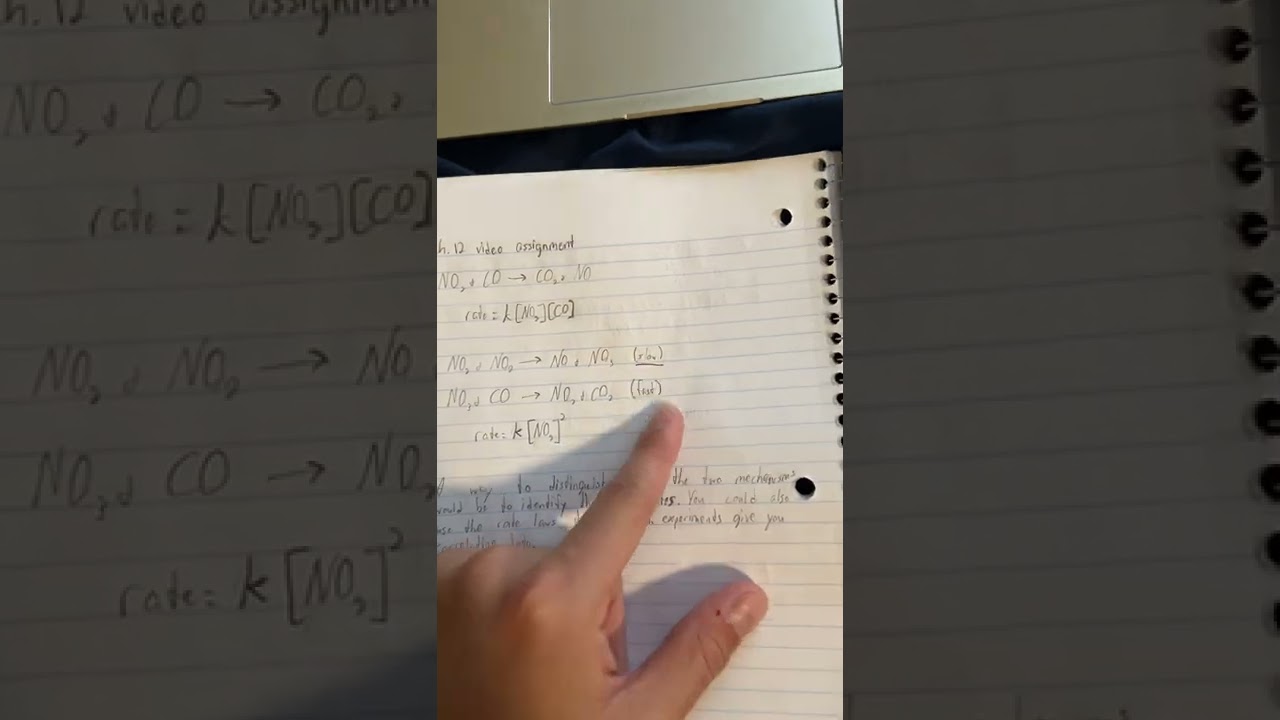 h.12 video assignment
NO₂ + CO → CO₂ + NO
rate = k[NO₂][CO]
NO₂ + NO₂ → NO + NO₃ (slow)
NO₃ + CO → NO₂ + CO₂ (fast)
rate = k[NO₂]²
A way to distinguish the two mechanisms
would be to identify You could also
use the rate laws experiments give you